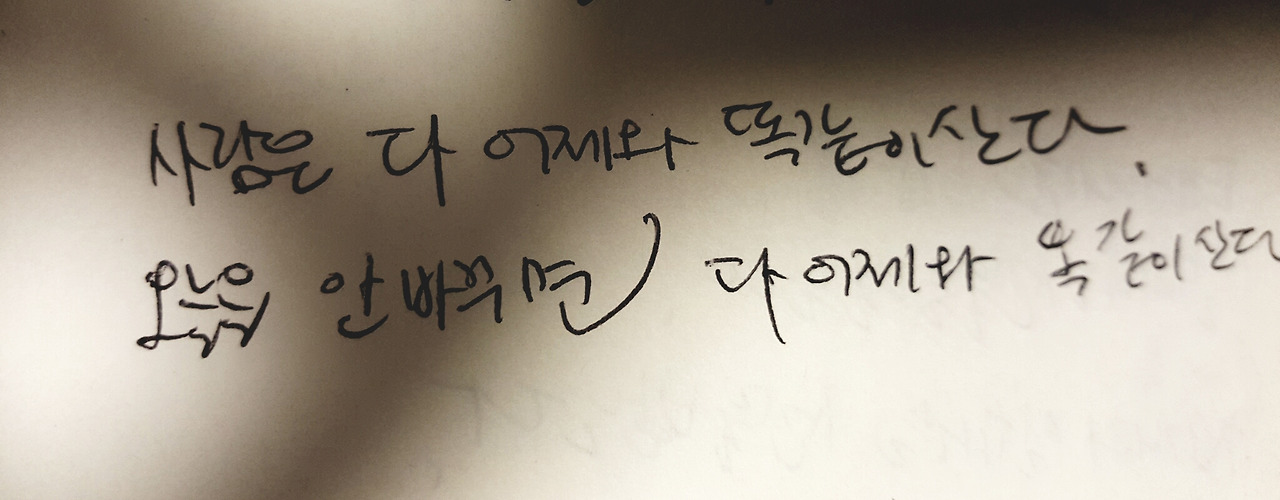 사람은 다 어제와 똑같이 산다.
오늘을 안바꾸면 다 어제와 똑같이 산다